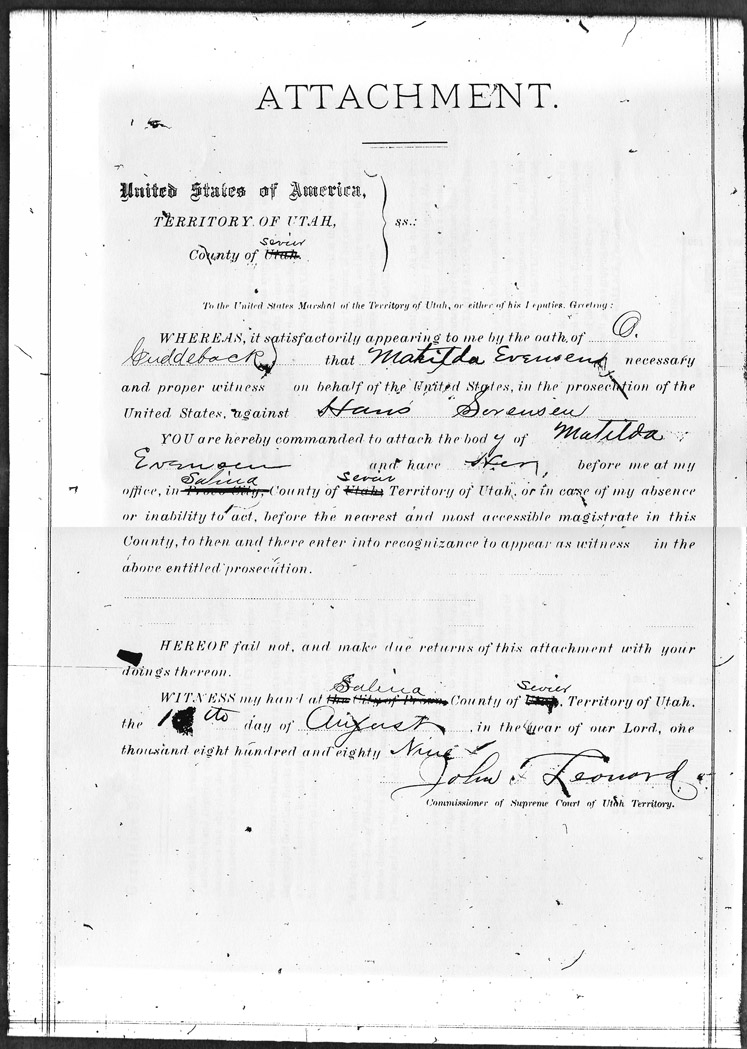 ATTACHMENT.
United States of America,
TERRITORY OF UTAH, ss.:
Sevier
County of Utah.
To the United States Marshal of the Territory of Utah, or either of his Deputies, Greeting:
WHEREAS, it satisfactorily appearing to me by the oath of O.
Cuddeback that Matilda Evensen necessary
and proper witness on behalf of the United States, in the prosecution of the
United States, against Hans Sorensen
YOU are hereby commanded to attach the body of Matilda
Evensen and have Her before me at my
Salina Sevier
office, in Provo City, County of Utah, Territory of Utah, or in case of my absence
or inability to act, before the nearest and most accessible magistrate in this
County, to then and there enter into recognizance to appear as witness in the
above entitled prosecution.
HEREOF fail not, and make due returns of this attachment with your
doings thereon.
Salina Sevier
WITNESS my hand at the City of Provo, County of Utah, Territory of Utah,
the th day of August, in the year of our Lord, one
thousand eight hundred and eighty Nine
John F Leonard
Commissioner of Supreme Court of Utah Territory.